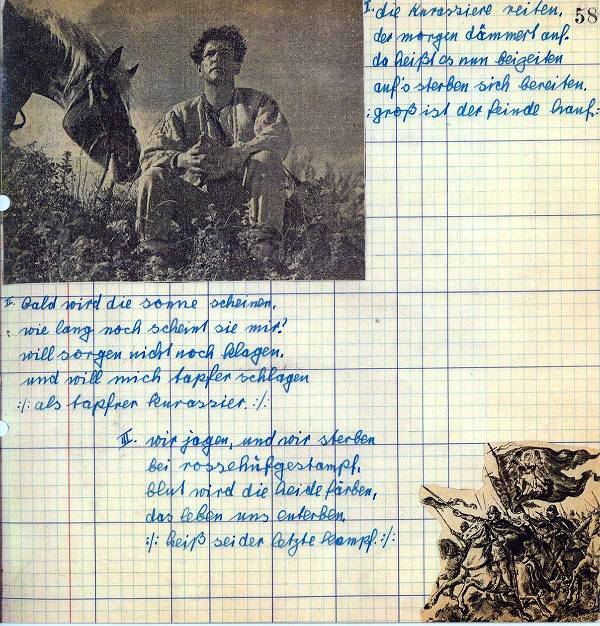 58
I. die kurassiere reiten,
der morgen dämmert auf.
da heißt es nun beizeiten
auf's sterben sich bereiten.
: groß ist der feinde hauf. :
II. bald wird die sonne scheinen,
wie lang noch scheint sie mir?
will sorgen nicht noch klagen.
und will mich tapfer schlagen
:/: als tapfrer kurassier. :/:
III. wir jagen, und wir sterben
bei rossehufgestampf,
blut wird die heide färben,
das leben uns enterben.
:/: heiß sei der letzte kampf. :/: